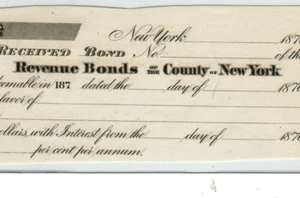 New York 187
Received Bond No. of the
Revenue Bonds of the County of New York
eemable in 187 dated the day of 187
favor of
ollars, with Interest from the day of 187
per cent per annum.